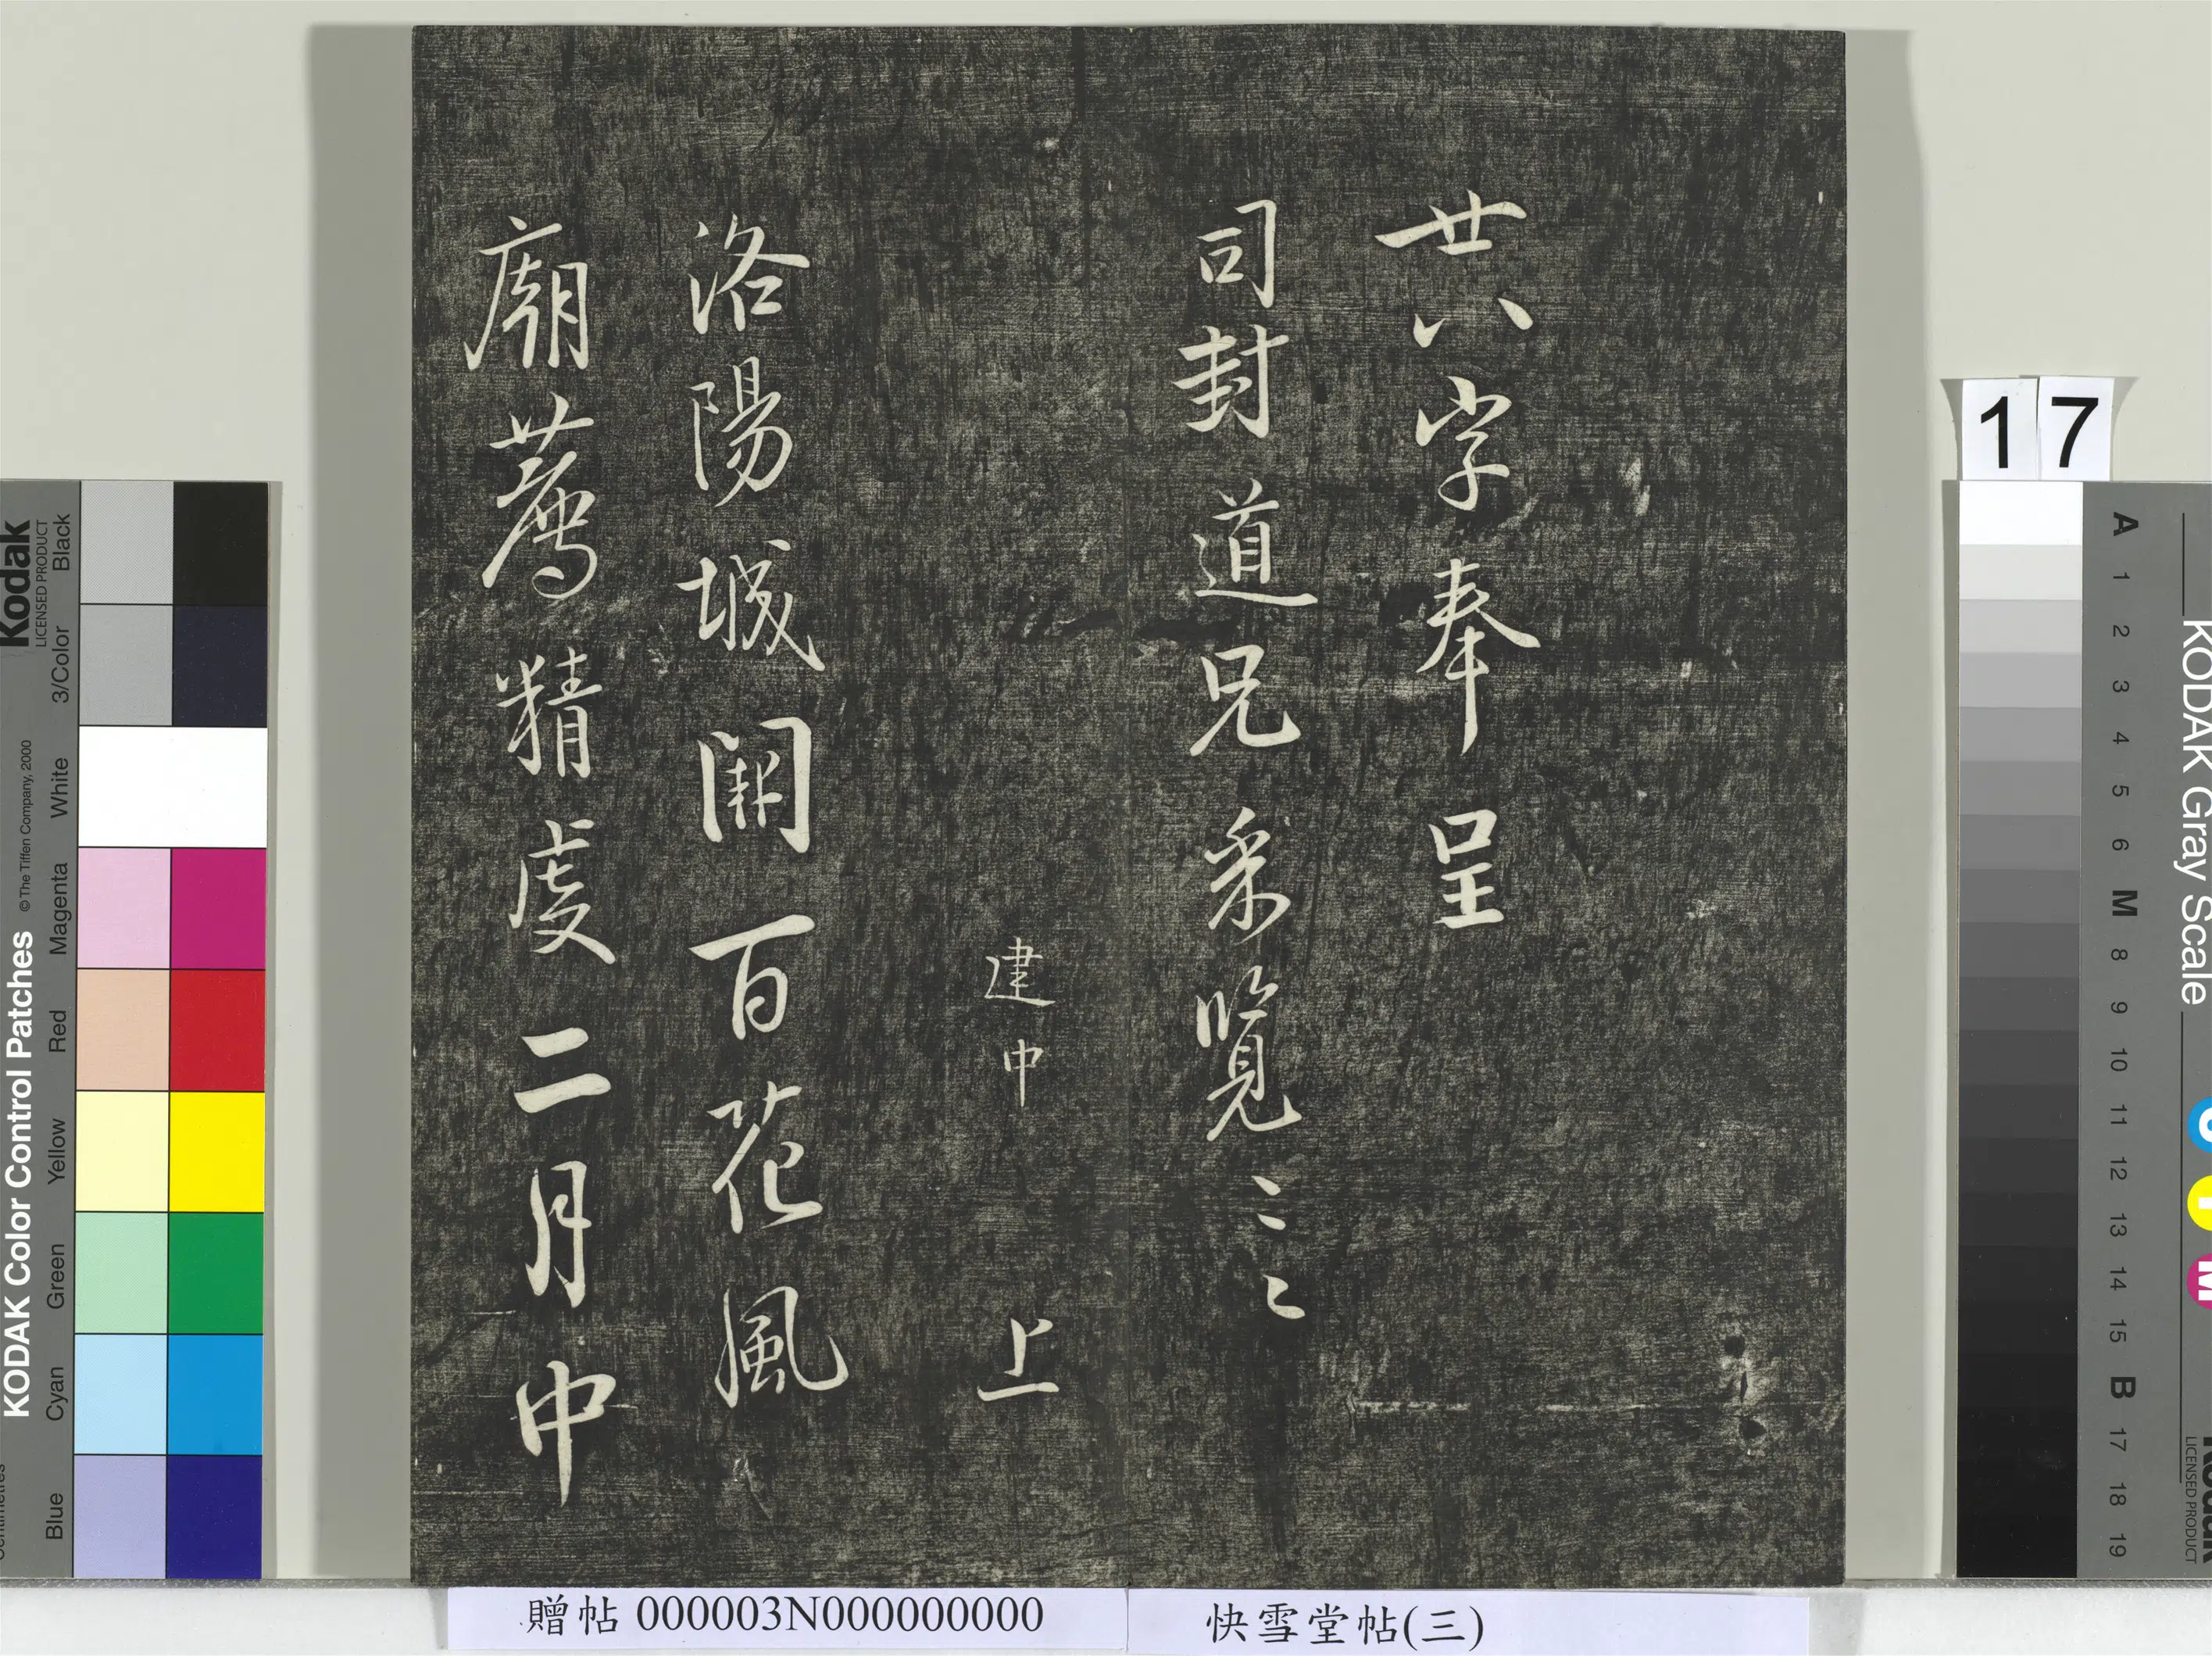 廿八字奉呈
司封道兄采覽三
建中 上
洛陽城闕百花風
廟薦精虔二月中
17
贈帖 000003N000000000
快雪堂帖(三)
KODAK Color Control Patches
© The Tiffen Company, 2000
Kodak
LICENSED PRODUCT
Black
3/Color
White
Magenta
Red
Yellow
Green
Cyan
Blue
KODAK Gray Scale
A 1 2 3 4 5 6 M 8 9 10 11 12 13 14 15 B 17 18 19
LICENSED PRODUCT
C
Y
M